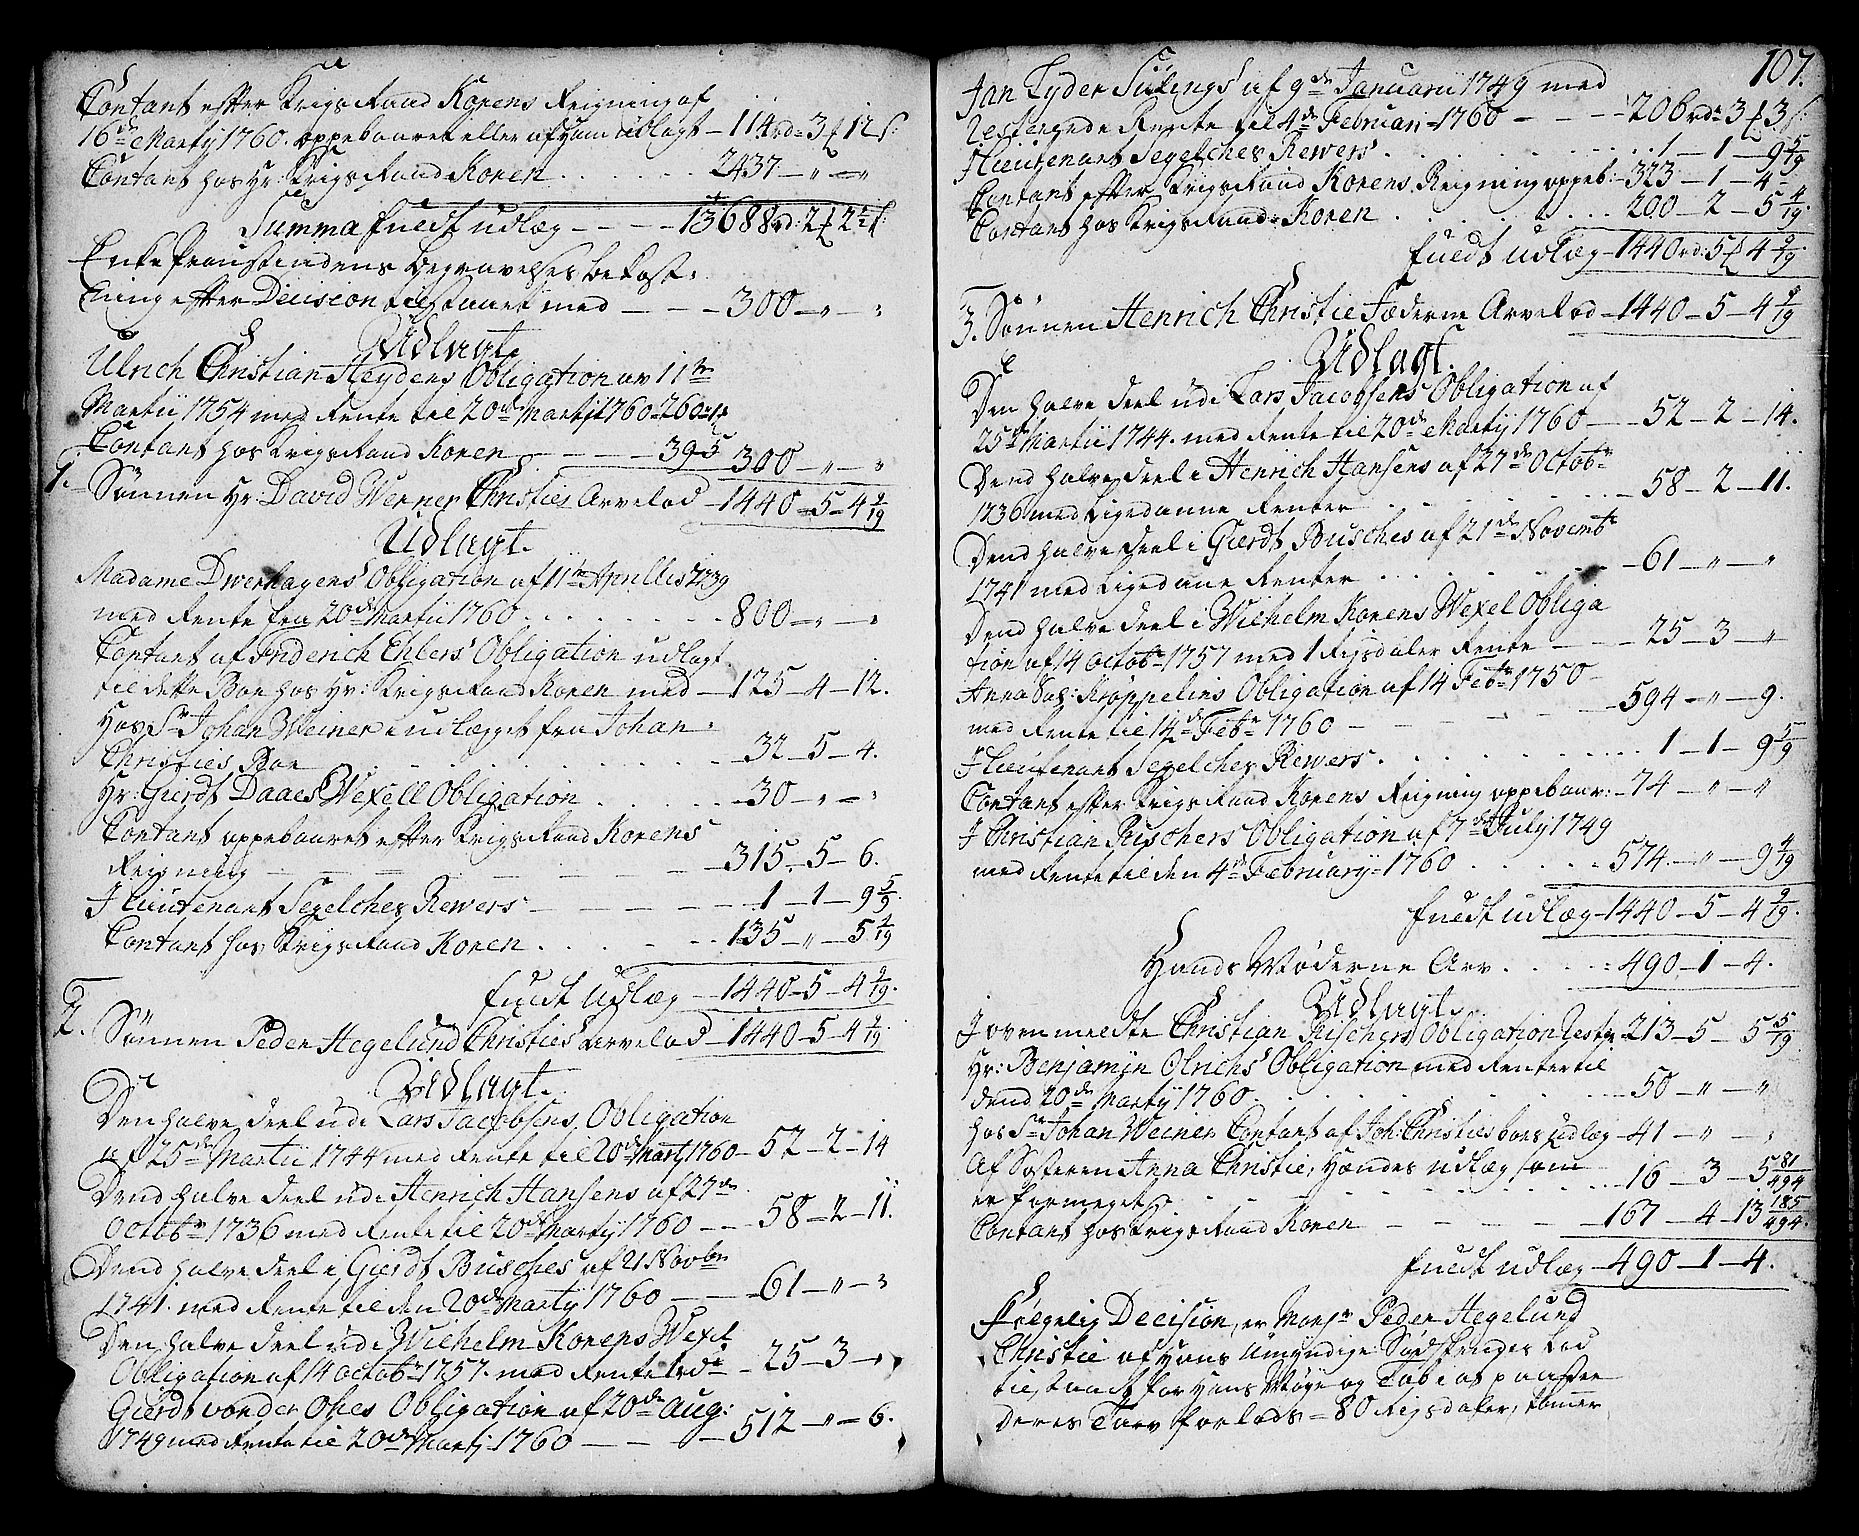 Contant efter Krigs Raad Korens Reigning af
16de Martij 1760. oppebaaret eller af ham udlagt – 114rd: 3 12 s:
Contant hos Hr: Krigs Raad Koren . . . . . . 2437 – „ – „
Summa fuldt udlæg – – – – 13688rd: 2 2½ s:
Enke Proustindens begravelses bekost-
ning efter Decision tilstaaet med – – – 300 – „ – „
Udlagt.
Ulrich Christian Heydens Obligation av 11te
Martii 1754 med Rente til 20de Martij 1760 – 260 – 1
Contant hos Krigs Raad Koren – – – – 39 5 300 – „ – „
1. Sønnen Hr: David Werner Christies Arvelod – 1440 – 5 – 4 9/19
Udlagt.
Madame Dverhagens Obligation af 11te Aprillis 1739
med Rente fra 20de Martii 1760 . . . . . . . 800 – „ – „
Contant af Friderich Ehlers Obligation udlagt
til dette Boe hos Hr: Krigs Raad Koren med – 125 – 4 – 12.
Hos Sr Johan Weiner i udlægget fra Johan
Christies Boe – – – – – 32 – 5 – 4.
Hr: Gierdt Daaes Wexell Obligation . . . . . – 30 – „ – „
Contant oppebaaret efter Krigs Raad Korens
Reigning – – – – – 315 – 5 – 6.
I Lieutenant Segelches Rewers – – – – – 1 – 1 – 9 5/9.
Contant hos Krigs Raad Koren . . . . . 135 – „ – 5 4/19
fuldt Udlæg – 1440 – 5 – 4 9/19.
2. Sønnen Peder Hegelund Christies Arvelod – 1440 – 5 – 4 9/19
Udlagt.
Den halve deel udi Lars Jacobsens Obligation
af 25de Martii 1744 med Rente til 20de Martj 1760 – 52 – 2 – 14
Dend halve deel udi Henrich Hansens af 27de
Octobr 1736 med Rente til 20de Martij 1760 – – 58 – 2 – 11.
Dend halve deel i Gierdt Busches af 21 Novbr
1741. med Rente til den 20de Martij 1760 – – – 61 – „ – „
Den halve deel udi Wilhelm Korens Wexel
Obligation af 14 octobr 1757. med Rente 1rd – 25 – 3 – „
Gierdt von der Ohes Obligation af 20de Aug:
1749 med Rente til 20de Martij 1760 – – – 512 – „ – 6.
107.
Jan Lyder Sülings af 9de Januarii 1749 med
resterende Rente til 4de Februari – 1760 – – – 206rd: 3 3 s:
I Lieutenant Segelches Rewers . . . . . . 1 – 1 – 9 5/9
Contant efter Krigs Raad Korens Reigning oppeb: – 323 – 1 – 4 –
Contant hos Krigs Raad Koren . . . . . . . 200 – 2 – 5 4/19.
fuldt udlæg – 1440rd: 5 4 9/19.
3. Sønnen Henrich Christie Fæderne Arvelod – 1440 – 5 – 4 9/19
Udlagt.
Den halve deel udi Lars Jacobsens Obligation af
25de Martii 1744. med Rente til 20de Martij 1760 – – 52 – 2 – 14.
Dend halve deel i Henrich Hansens af 27de Octobr
1736 med ligedanne Renter . . . . . . – 58 – 2 – 11.
Dend halve deel i Gierdt Busches af 21de Novembr
1741 med ligedane Renter . . . . . . – 61 – „ – „
Dend halve deel i Wilhelm Korens Wexel Obliga
tion af 14 octobr 1757 med 1 Rigsdaler Rente – – 25 – 3 – „
Anna Sal: Krøppelins Obligation af 14 Febr 1750
med Rente til 14de Febr 1760 – – – – 594 – „ – 9.
I Lieutenant Segelches Rewers . . . . . . 1 – 1 – 9 5/9
Contant efter Krigs Raad Korens Reigning oppebaar: – 74 – „ – „
I Christian Buschers Obligation af 7de Julij 1749
med Rente til den 4de Februarij – 1760 . . . . . 574 – „ – 9 4/19
fuldt udlæg – 1440 – 5 – 4 9/19.
Hands Møderne Arv . . . . : 490 – 1 – 4.
Udlagt.
I ovenmeldte Christian Buschers Obligation Rest: 213 – 5 – 5 5/19
Hr: Benjamin Olrichs Obligation med Renter til
dend 20de Martij 1760 . . . . . . – 50 – „ – „
hos Sr Johan Weiner Contant af Joh: Christies boes udlæg – 41 – „ – „
Af Søsteren Anna Christie, hendes udlæg som
er formeget . . . . . . 16 – 3 – 5 81/494
Contant hos Krigs Raad Koren – – – – – 167 – 4 – 13 185/494.
fuldt udlæg – 490 – 1 – 4.
Følgelig Decision, er Monsr Peder Hegelund
Christie af Hans Umyndige Sødskendes lod
tillandt for Hans Møye og Tab i at paasee
deres Tarv forlods – 80 Rigsdaler, kommer